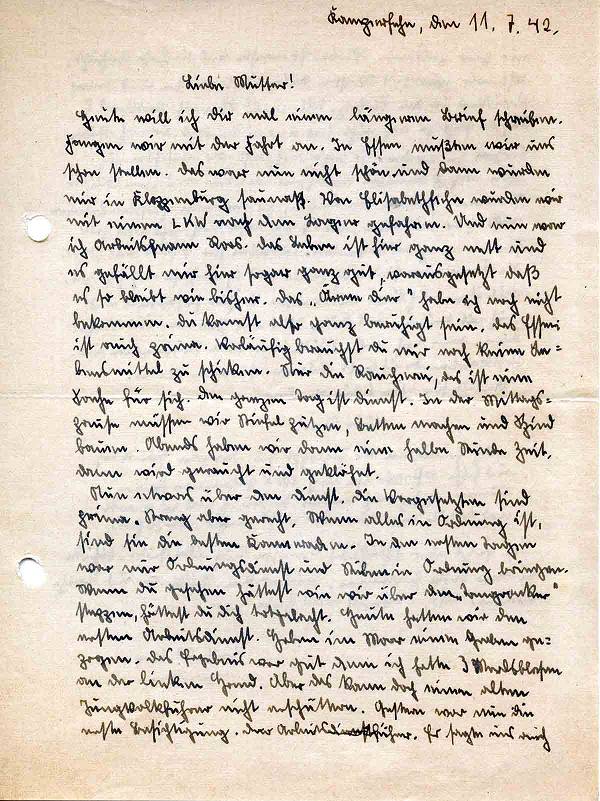 Kampersfehn, den 11. 7. 42.
Liebe Mutter!
Heute will ich dir mal einen längeren Brief schreiben.
Fangen wir mit der Fahrt an. In Essen mußten wir uns
schon stellen. Das war nun nicht schön und dann wurden
wir in Kloppenburg saunaß. Von Elisabethfehn wurden wir
mit einem LKW nach dem Lager gefahren. Und nun war
ich Arbeitsmann Roos. Das Leben ist hier ganz nett und
es gefällt mir hier sogar ganz gut, vorausgesetzt daß
es so bleibt wie bisher. Das „ " habe ich noch nicht
bekommen. Du kannst also ganz beruhigt sein. Das Essen
ist auch prima. Vorläufig brauchst du mir noch keine Le=
bensmittel zu schicken. Nur die Raucherei, das ist eine
Sache für sich. Den ganzen Tag ist Dienst. In der Mittags=
pause müssen wir Stiefel putzen, Betten machen und Spind
bauen. Abends haben wir dann eine halbe Stunde Zeit,
dann wird geraucht und geklöhnt.
Nun etwas über den Dienst. Die Vorgesetzten sind
prima. Streng aber gerecht. Wenn alles in Ordnung ist,
sind sie die besten Kameraden. In den ersten Tagen
war nur Ordnungsdienst und Stuben in Ordnung bringen.
Wenn du gesehen hättest wie wir über den „Langeoker"
stappen, hättest du dich totgelacht. Heute hatten wir den
ersten Arbeitsdienst. Haben im Moor einen Graben ge=
zogen. Das Ergebnis war gut denn ich hatte 3 Mordsblasen
an der linken Hand. Aber das kann doch einen alten
Jungvolkführer nicht erschüttern. Gestern war nun die
erste Besichtigung. Der Arbeitsführer. Er sagte uns auch